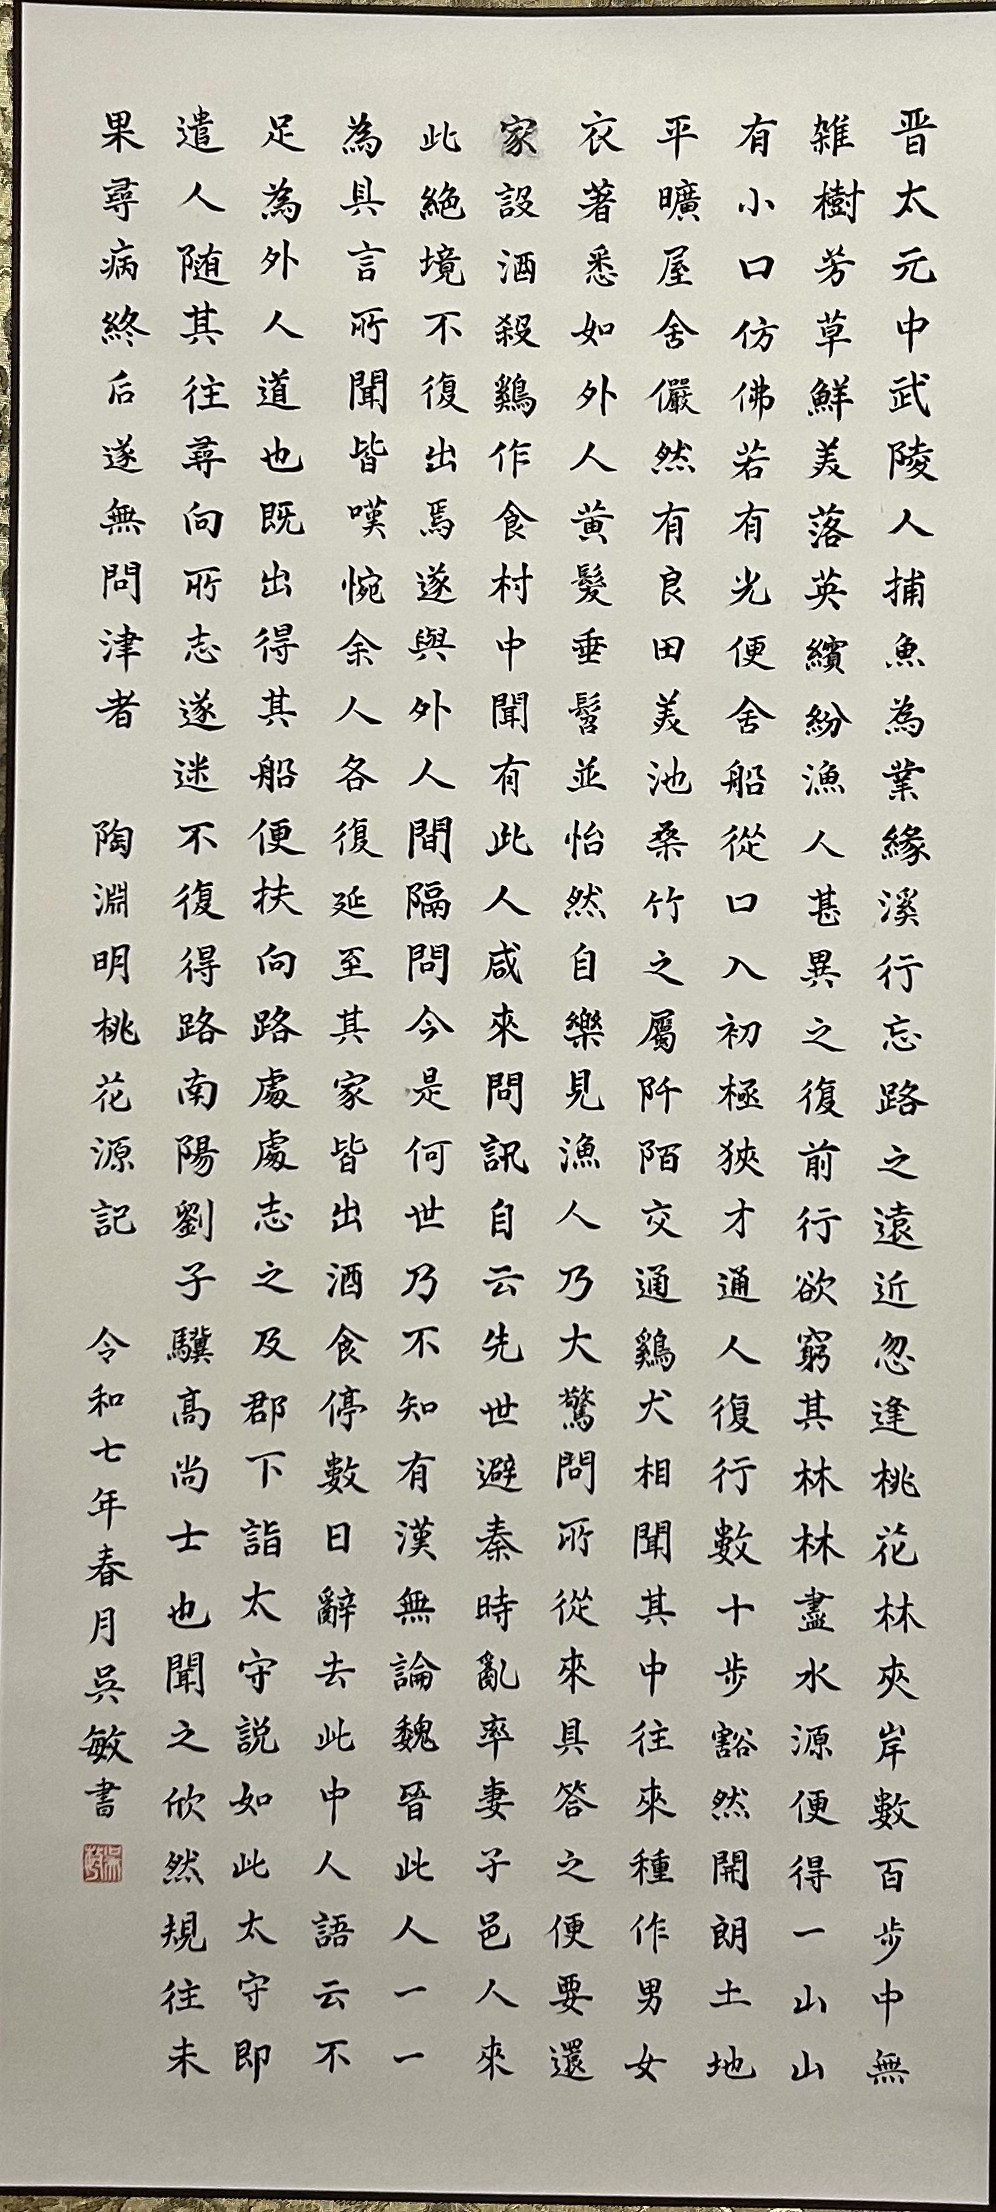 晋太元中武陵人捕魚為業緣溪行忘路之遠近忽逢桃花林夾岸數百步中無
雑樹芳草鮮美落英繽紛漁人甚異之復前行欲窮其林林盡水源便得一山山
有小口仿佛若有光便舍船從口入初極狹才通人復行數十步豁然開朗土地
平曠屋舍儼然有良田美池桑竹之屬阡陌交通鷄犬相聞其中往來種作男女
衣著悉如外人黄髮垂髫並怡然自樂見漁人乃大驚問所從來具答之便要還
家設酒殺鷄作食村中聞有此人咸來問訊自云先世避秦時亂率妻子邑人來
此絶境不復出焉遂與外人間隔問今是何世乃不知有漢無論魏晉此人一一
為具言所聞皆嘆惋余人各復延至其家皆出酒食停數日辭去此中人語云不
足為外人道也既出得其船便扶向路處處志之及郡下詣太守説如此太守即
遣人随其往尋向所志遂迷不復得路南陽劉子驥高尚士也聞之欣然規往未
果尋病終后遂無問津者 陶淵明桃花源記 令和七年春月吳敏書